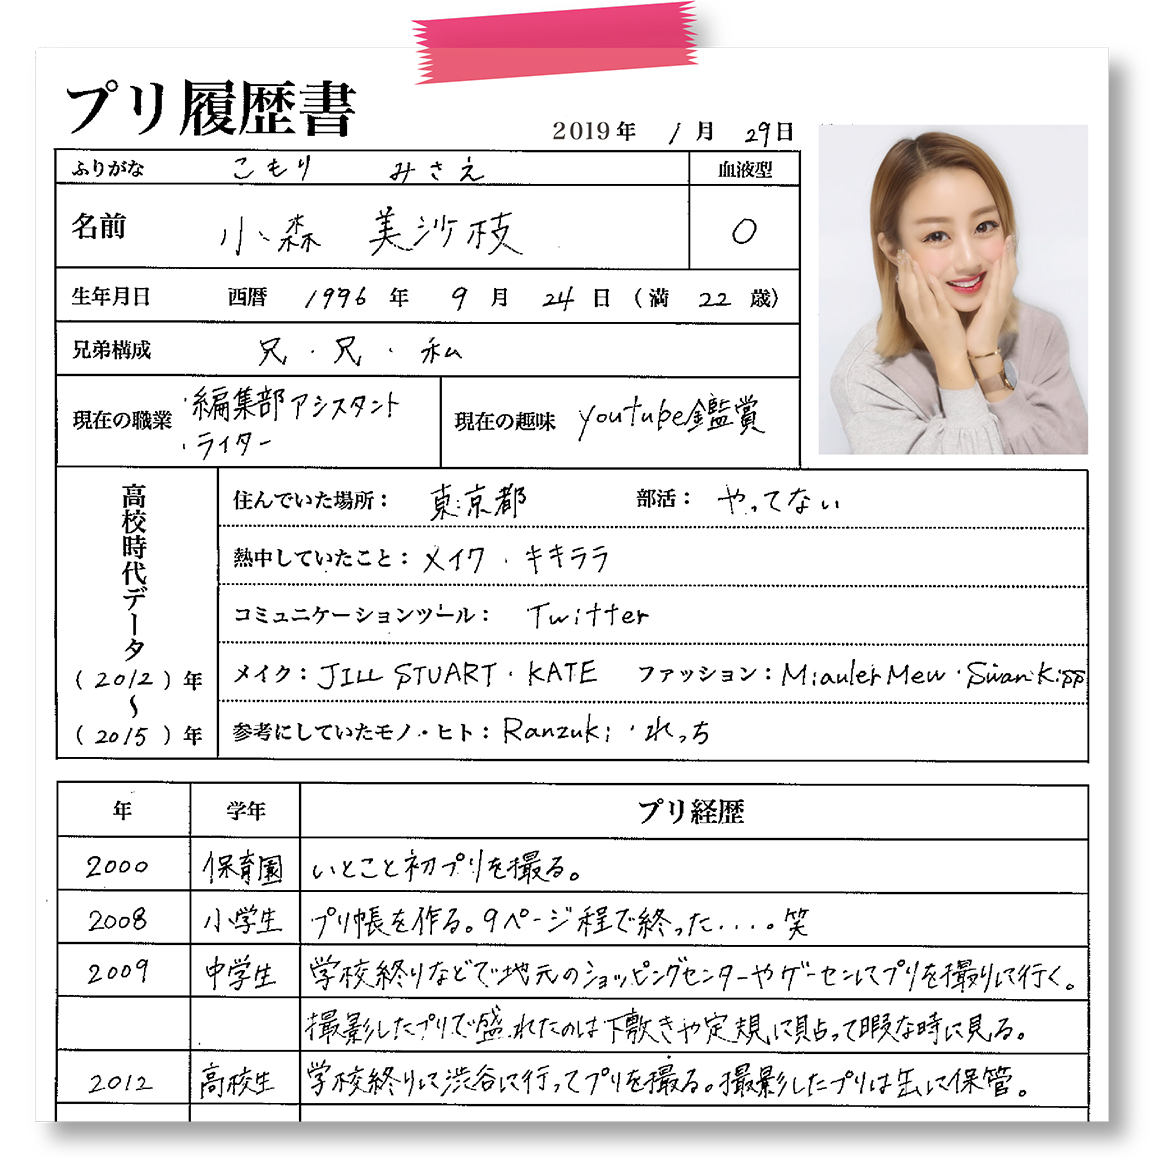 プリ履歴書
2019年 1月 29日
ふりがな こもり みさえ 血液型
名前 小森 美沙枝 O
生年月日 西暦 1996 年 9 月 24 日 (満 22 歳)
兄弟構成 兄・兄・私
現在の職業 ・編集部アシスタント
・ライター
現在の趣味 youtube鑑賞
高校時代データ
(2012)年
〜
(2015)年
住んでいた場所: 東京都 部活: やってない
熱中していたこと: メイク・キキララ
コミュニケーションツール: Twitter
メイク: JILL STUART・KATE ファッション: Miauler Mew・Swankiss
参考にしていたモノ・ヒト: Ranzuki・れっち
年 学年 プリ経歴
2000 保育園 いとこと初プリを撮る。
2008 小学生 プリ帳を作る。9ページ程で終った....。笑
2009 中学生 学校終りなどで地元のショッピングセンターやゲーセンにてプリを撮りに行く。
撮影したプリで盛れたのは下敷きや定規に貼って暇な時に見る。
2012 高校生 学校終りに渋谷に行ってプリを撮る。撮影したプリは缶に保管。